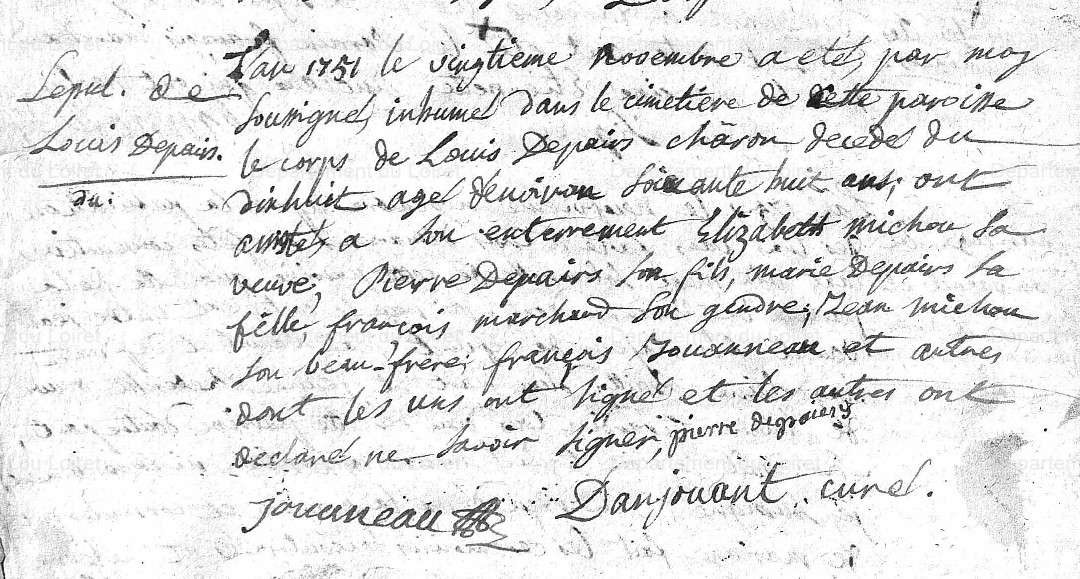 Sepul. de
Louis Depairs.
du:
L'an 1751 le vingtieme novembre a eté, par moy
soussigné, inhumé dans le cimetière de cette paroisse
le corps de Louis Depairs chàron decedé du
dixhuit agé denviron soixante huit ans; ont
assisté a son enterrement Elizabeth michou sa
veuve; Pierre Depairs son fils, marie Depairs sa
fille, françois marchand son gendre; Jean michou
son beau-frere; françois Jouanneau et autres
dont les uns ont signé et les autres ont
declaré ne savoir signer, pierre
jouanneau Danjouant curé.